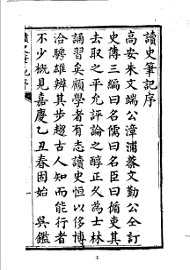 讀史筆記序
高安朱文端公漳浦蔡文勤公全訂
史傳三編曰名儒曰名臣曰循吏其
去取之平允評論之醇正久為士林
誦習矣顧學者有志讀史恒以侈博
洽騁雄辨其步趨古人知而能行者
不少概見嘉慶乙丑春固始 吳鑑